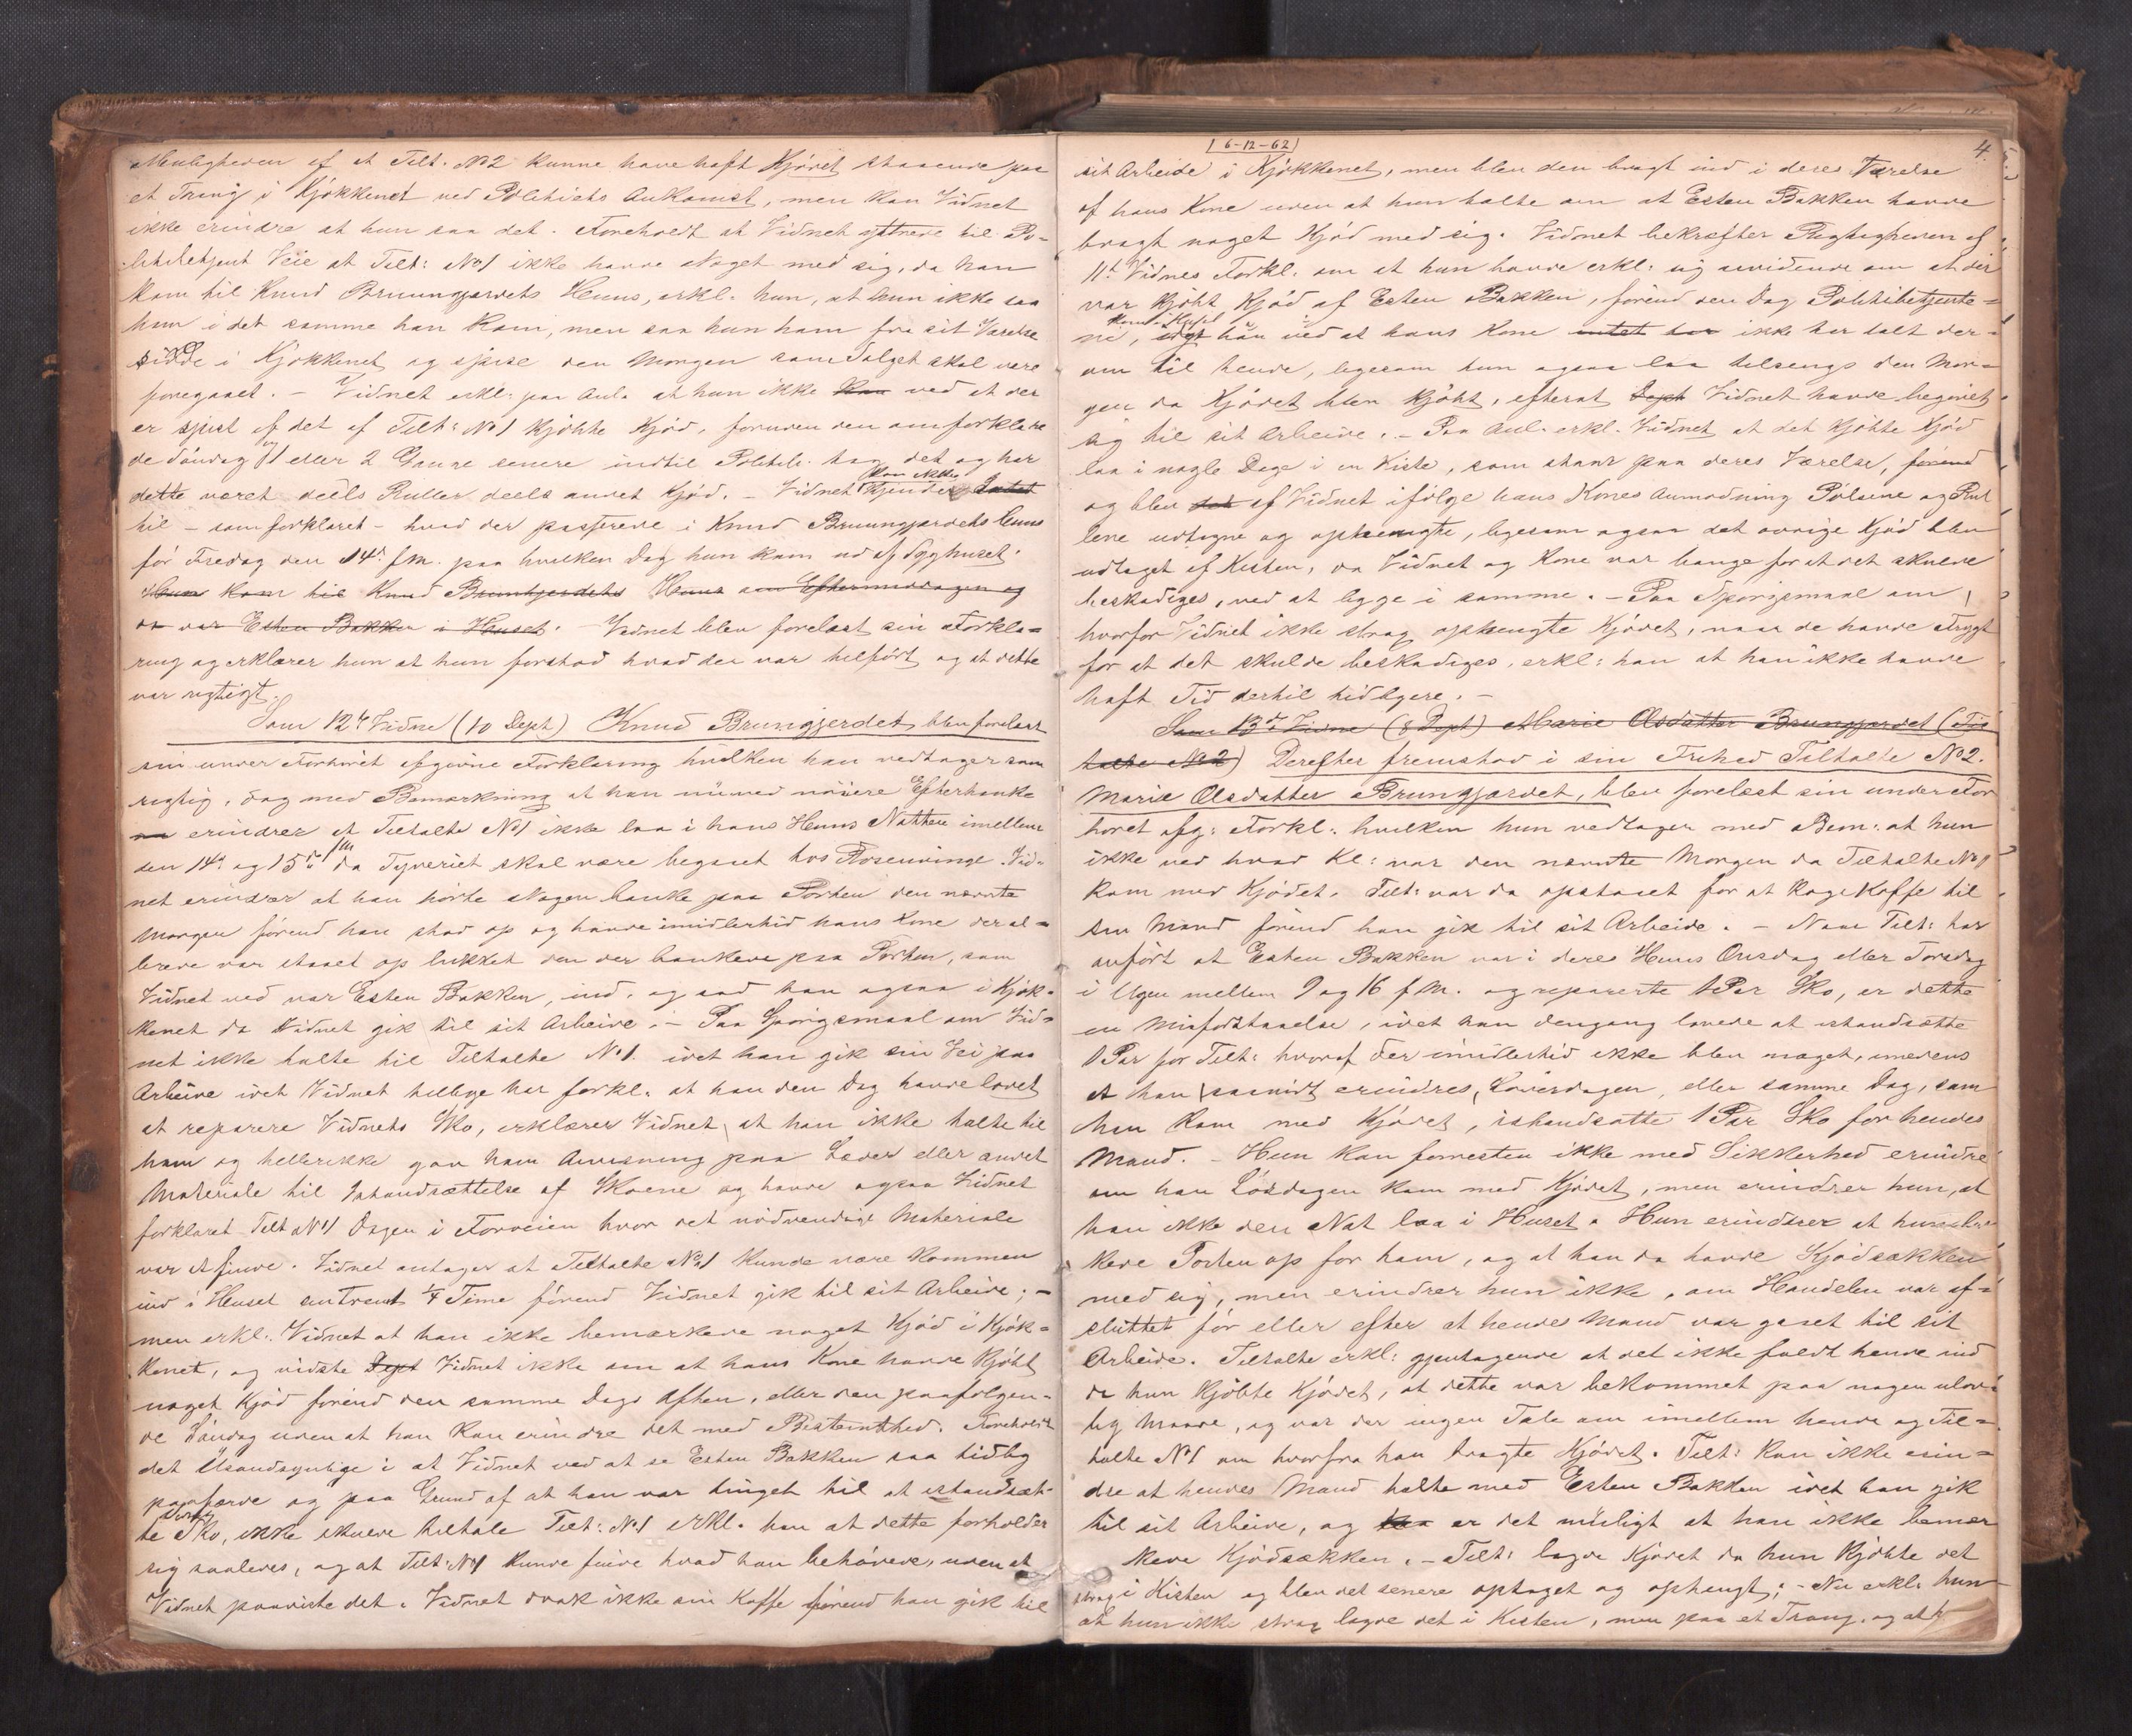 Muligheden af at Tilt. No 2 kunne have haft Kjödet staaende paa
et Traug i Kjökkenet ved Politiets Ankomst, men kan Vidnet
ikke erindre at hun saa det. Foreholdt at Vidnet yttrede til Po-
litibetjent Veie at Tilt: No 1 ikke havde Noget med sig, da han
kom til Knud Bruungjærdets Huus, erkl. hun, at hun ikke saa
ham i det samme han kom, men saa hun ham fra sit Værelse
sidde i Kjökkenet og spise den Morgen som Salget skal være
foregaaet. – Vidnet erkl: paa Anl. at hun ikke kan ved at der
er spist af det af Tilt: No 1 kjöbte Kjöd, foruden den omforklare
de Söndag og 1 eller 2 Gange senere indtil Politiet tog det og har
dette været deels Ruller deels andet Kjöd. – Vidnet kjender
til – som forklaret – hvad der passerede i Knud Bruungjærdets Huus
för Fredag den 14de f.M. paa hvilken Dag hun kom ud af Syghuset.
Hun kom til Knud Brunkjerdets Huus om Eftermiddagen og
da var Esten Bakken i Huset. Vidnet blev forelæst sin Forkla-
ring og erklærer hun at hun forstod hvad der var tilfört og at dette
var rigtigt.
Som 12te Vidne (10 Dept) Knud Brungjerdet blev forelæst
sin under Forhöret afgivne Forklaring hvilken han vedtager som
rigtig, dog med Bemærkning at han nu ved nöiere Eftertanke
erindrer at Tiltalte No 1 ikke laa i hans Huus Natten imellem
den 14de og 15de f.M. da Tyveriet skal være begaaet hos Rosenvinge. Vid-
net erindrer at han hörte Nogen banke paa Porten den nævnte
Morgen förend han stod op og havde imidlertid hans Kone der al-
lerede var staaet op lukket den der bankede paa Porten, som
Vidnet ved var Esten Bakken, ind, og sad han ogsaa i Kjök-
kenet da Vidnet gik til sit Arbeide. – Paa Spörgsmaal om Vid-
net ikke talte til Tiltalte No 1. idet han gik sin Vei paa
Arbeide idet Vidnet tillige har forkl. at han den Dag havde lovet
at reparere Vidnets Sko, erklærer Vidnet, at han ikke talte til
ham og hellerikke gav ham Anvisning paa Læder eller andet
Materiale til Istandsættelse af Skoene og havde ogsaa Vidnet
forklaret Tilt No 1 Dagen i Forveien hvor det nödvendige Materiale
var at finde. Vidnet antager at Tiltalte No 1 kunde være kommen
ind i Huset omtrent 1/4 Time förend Vidnet gik til sit Arbeide; –
men erkl. Vidnet at han ikke bemærkede noget Kjöd i Kjök-
kenet, og vidste Dept Vidnet ikke om at hans Kone havde kjöbt
noget Kjöd förend den samme Dags Aften, eller den paafölgen-
de Söndag uden at han kan erindre det med Bestemthed. Foreholdt
det Usandsynlige i at Vidnet ved at se Esten Bakken saa tidlig
paafærde og paa Grund af at han var tinget til at istandsæt-
te Sko, ikke skulde tiltale Tilt: No 1 erkl. han at dette forholder
sig saaledes, og at Tilt: No 1 kunde finde hvad han behövede, uden at
Vidnet paaviste det. Vidnet drak ikke sin Kaffe förend han gik til
16-12-62
4.
sit Arbeide i Kjökkenet, men blev den bragt ind i deres Værelse
af hans Kone uden at hun talte om at Esten Bakken havde
bragt noget Kjöd med sig. Vidnet bekræfter Rigtigheden af
11te Vidnes Forkl. om at hun havde erkl: sig uvidende om at der
var kjöbt Kjöd af Esten Bakken, förend den Dag Politibetjente-
ne, idet han ved at hans Kone intet har ikke har talt der-
om til hende, ligesom hun ogsaa laa tilsengs den Mor-
gen da Kjödet blev kjöbt, efterat Dept Vidnet havde begivet
sig til sit Arbeide. – Paa Anl. erkl. Vidnet at det kjöbte Kjöd
laa i nogle Dage i en Kiste, som stod paa deres Værelse, förend
og blev af Vidnet ifölge hans Kones Anmodning Pölsene og Rul
lene udtagne og ophængte, ligesom ogsaa det övrige Kjöd blev
udtaget af Kisten, da Vidnet og Kone var bange for at det skulde
beskadiges, ved at ligge i samme. – Paa Spörgsmaal om
hvorfor Vidnet ikke strax ophængte Kjödet, naar de havde Frygt
for at det skulde beskadiges, erkl: han at han ikke havde
haft Tid dertil tidligere. –
Som 13de Vidne (8 Dept) Marie Olsdatter Brungjerdet (Til
talte No 2) Derefter fremstod i sin Frihed Tiltalte No 2.
Marie Olsdatter Brungjærdet, blev forelæst sin under For
höret afg: Forkl. hvilken hun vedtager med Bem: at hun
ikke ved hvad Kl: var den nævnte Morgen da Tiltalte No 1
kom med Kjödet. Tilt: var da opstaaet for at koge Kaffe til
sin Mand förend han gik til sit Arbeide. – Naar Tilt: har
anfört at Esten Bakken var i deres Huus Onsdag eller Torsdag
i Ugen mellem 9 og 16 f.M. og reparerte 1 Par Sko, er dette
en Misforstaaelse, idet han dengang lovede at istandsætte
1 Par for Tilt: hvoraf der imidlertid ikke blev noget, imedens
at han saavidt erindres, Löverdagen, eller samme Dag, som
han kom med Kjödet, istandsatte 1 Par Sko for hendes
Mand. – Hun kan forresten ikke med Sikkerhed erindre
om han Lördagen kom med Kjödet, men erindrer hun, at
han ikke den Nat laa i Huset. Hun erindrer at hun luk
kede Porten op for ham, og at han da havde Kjödsækken
med sig, men erindrer hun ikke, om Handelen var af-
sluttet för eller efter at hendes Mand var gaaet til sit
Arbeide. Tiltalte erkl: gjentagende at det ikke faldt hende ind
da hun kjöbte Kjödet, at dette var bekommet paa nogen ulov-
lig Maade, og var der ingen Tale om imellem hende og Til-
talte No 1 om hvorfra han bragte Kjödet. Tilt: kan ikke erin-
dre at hendes Mand talte med Esten Bakken idet han gik
til sit Arbeide, og er det muligt at han ikke bemær
kede Kjödsækken. – Tilt: lagde Kjödet da hun kjöbte det
strax i Kisten og blev det senere optaget og ophængt; – Nu erkl. hun
at hun ikke strax lagde det i Kisten, men paa et Traug, og at